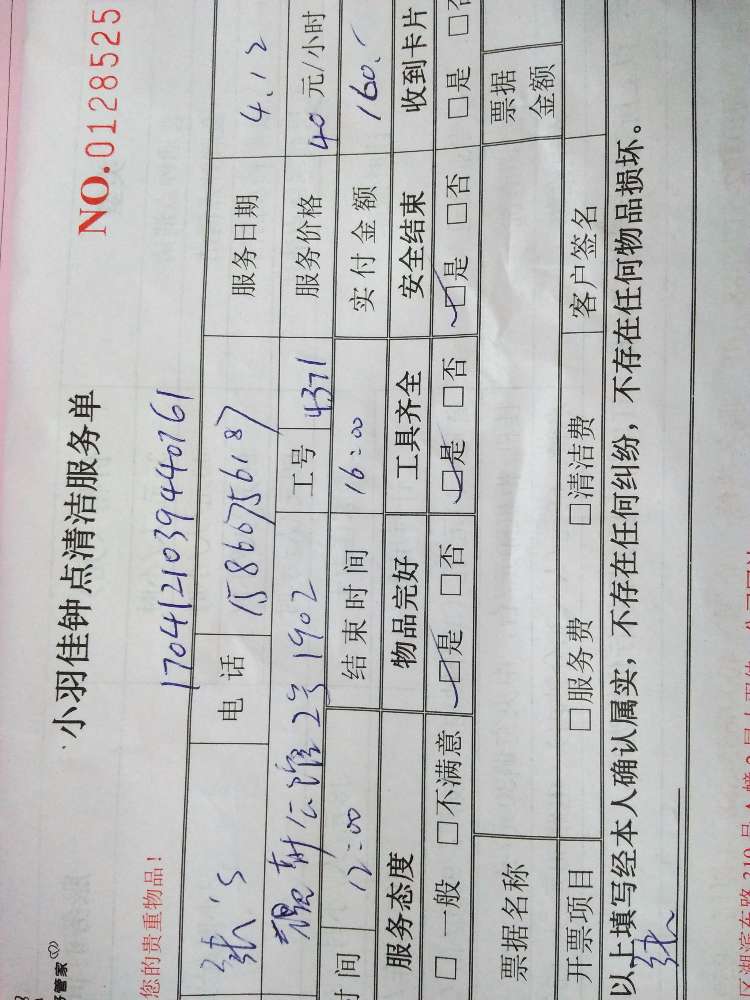 小羽佳钟点清洁服务单
NO.0128525
您的贵重物品！
1704121039440761
张's 电 话 15866756187 服务日期 4.12
观新公馆2号1902 工号 4371 服务价格 40 元/小时
时间 12:00 结束时间 16:00 实付金额 160.
服务态度 物品完好 工具齐全 安全结束 收到卡片
□ 一般 □不满意 □是 □否 □是 □否 □是 □否 □是 □否
票据名称 票据金额
开票项目 □服务费 □清洁费 客户签名
以上填写经本人确认属实，不存在任何纠纷，不存在任何物品损坏。
张